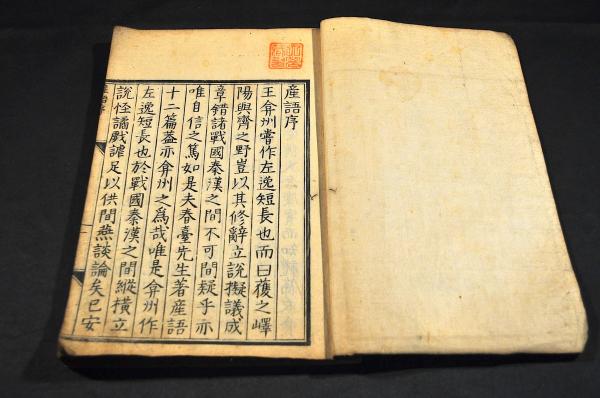 産語序
王弇州嘗作左逸短長也而曰獲之嶧
陽與齊之野豈以其修辭立說擬議成
章錯諸戰國秦漢之間不可間疑乎亦
唯自信之篤如是夫春臺先生著産語
十二篇蓋亦弇州之爲哉唯是弇州作
左逸短長也於戰國秦漢之間縱橫立
說怪譎戲謔足以供間燕談論矣已安